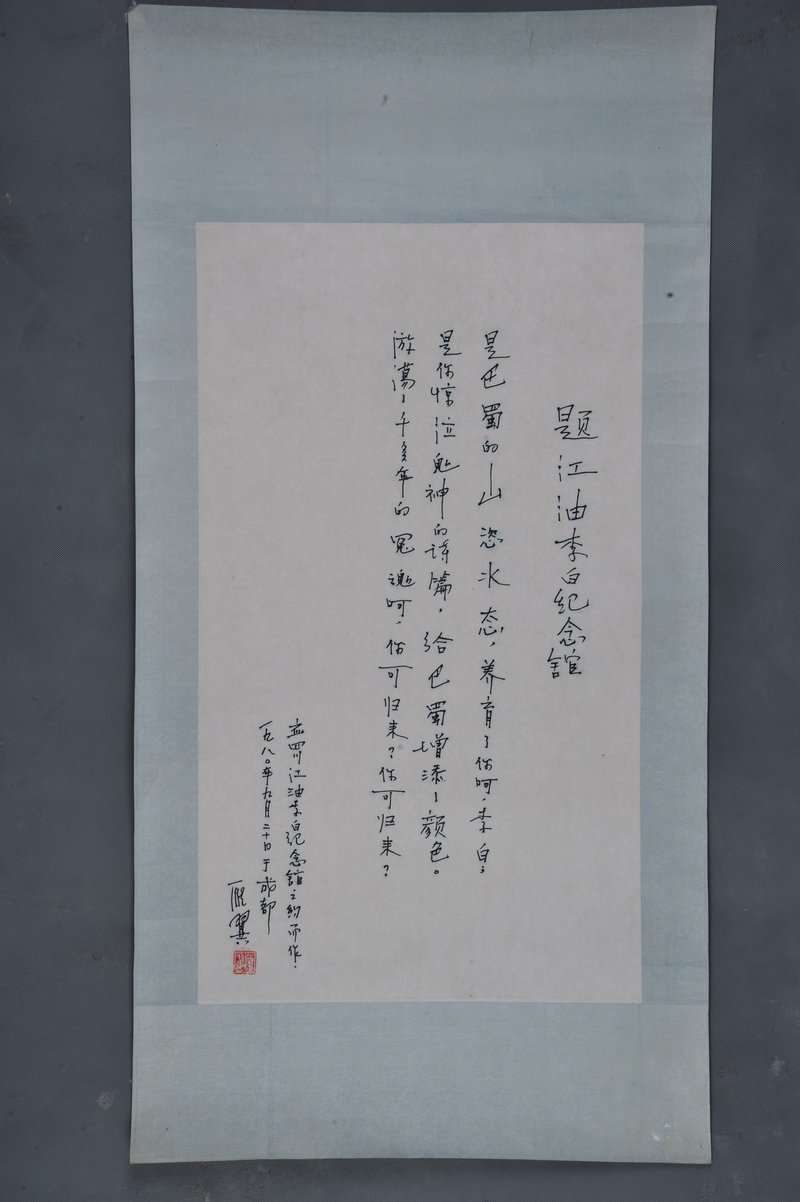 题江油李白纪念馆
是巴蜀的山恣水态，养育了你呵，李白；
是你惊泣鬼神的诗篇，给巴蜀增添了颜色。
游荡了千多年的冤魂呵，你可归来？你可归来？
应四川江油李白纪念馆之约而作.
一九八〇年九月二十日于成都
雁翼